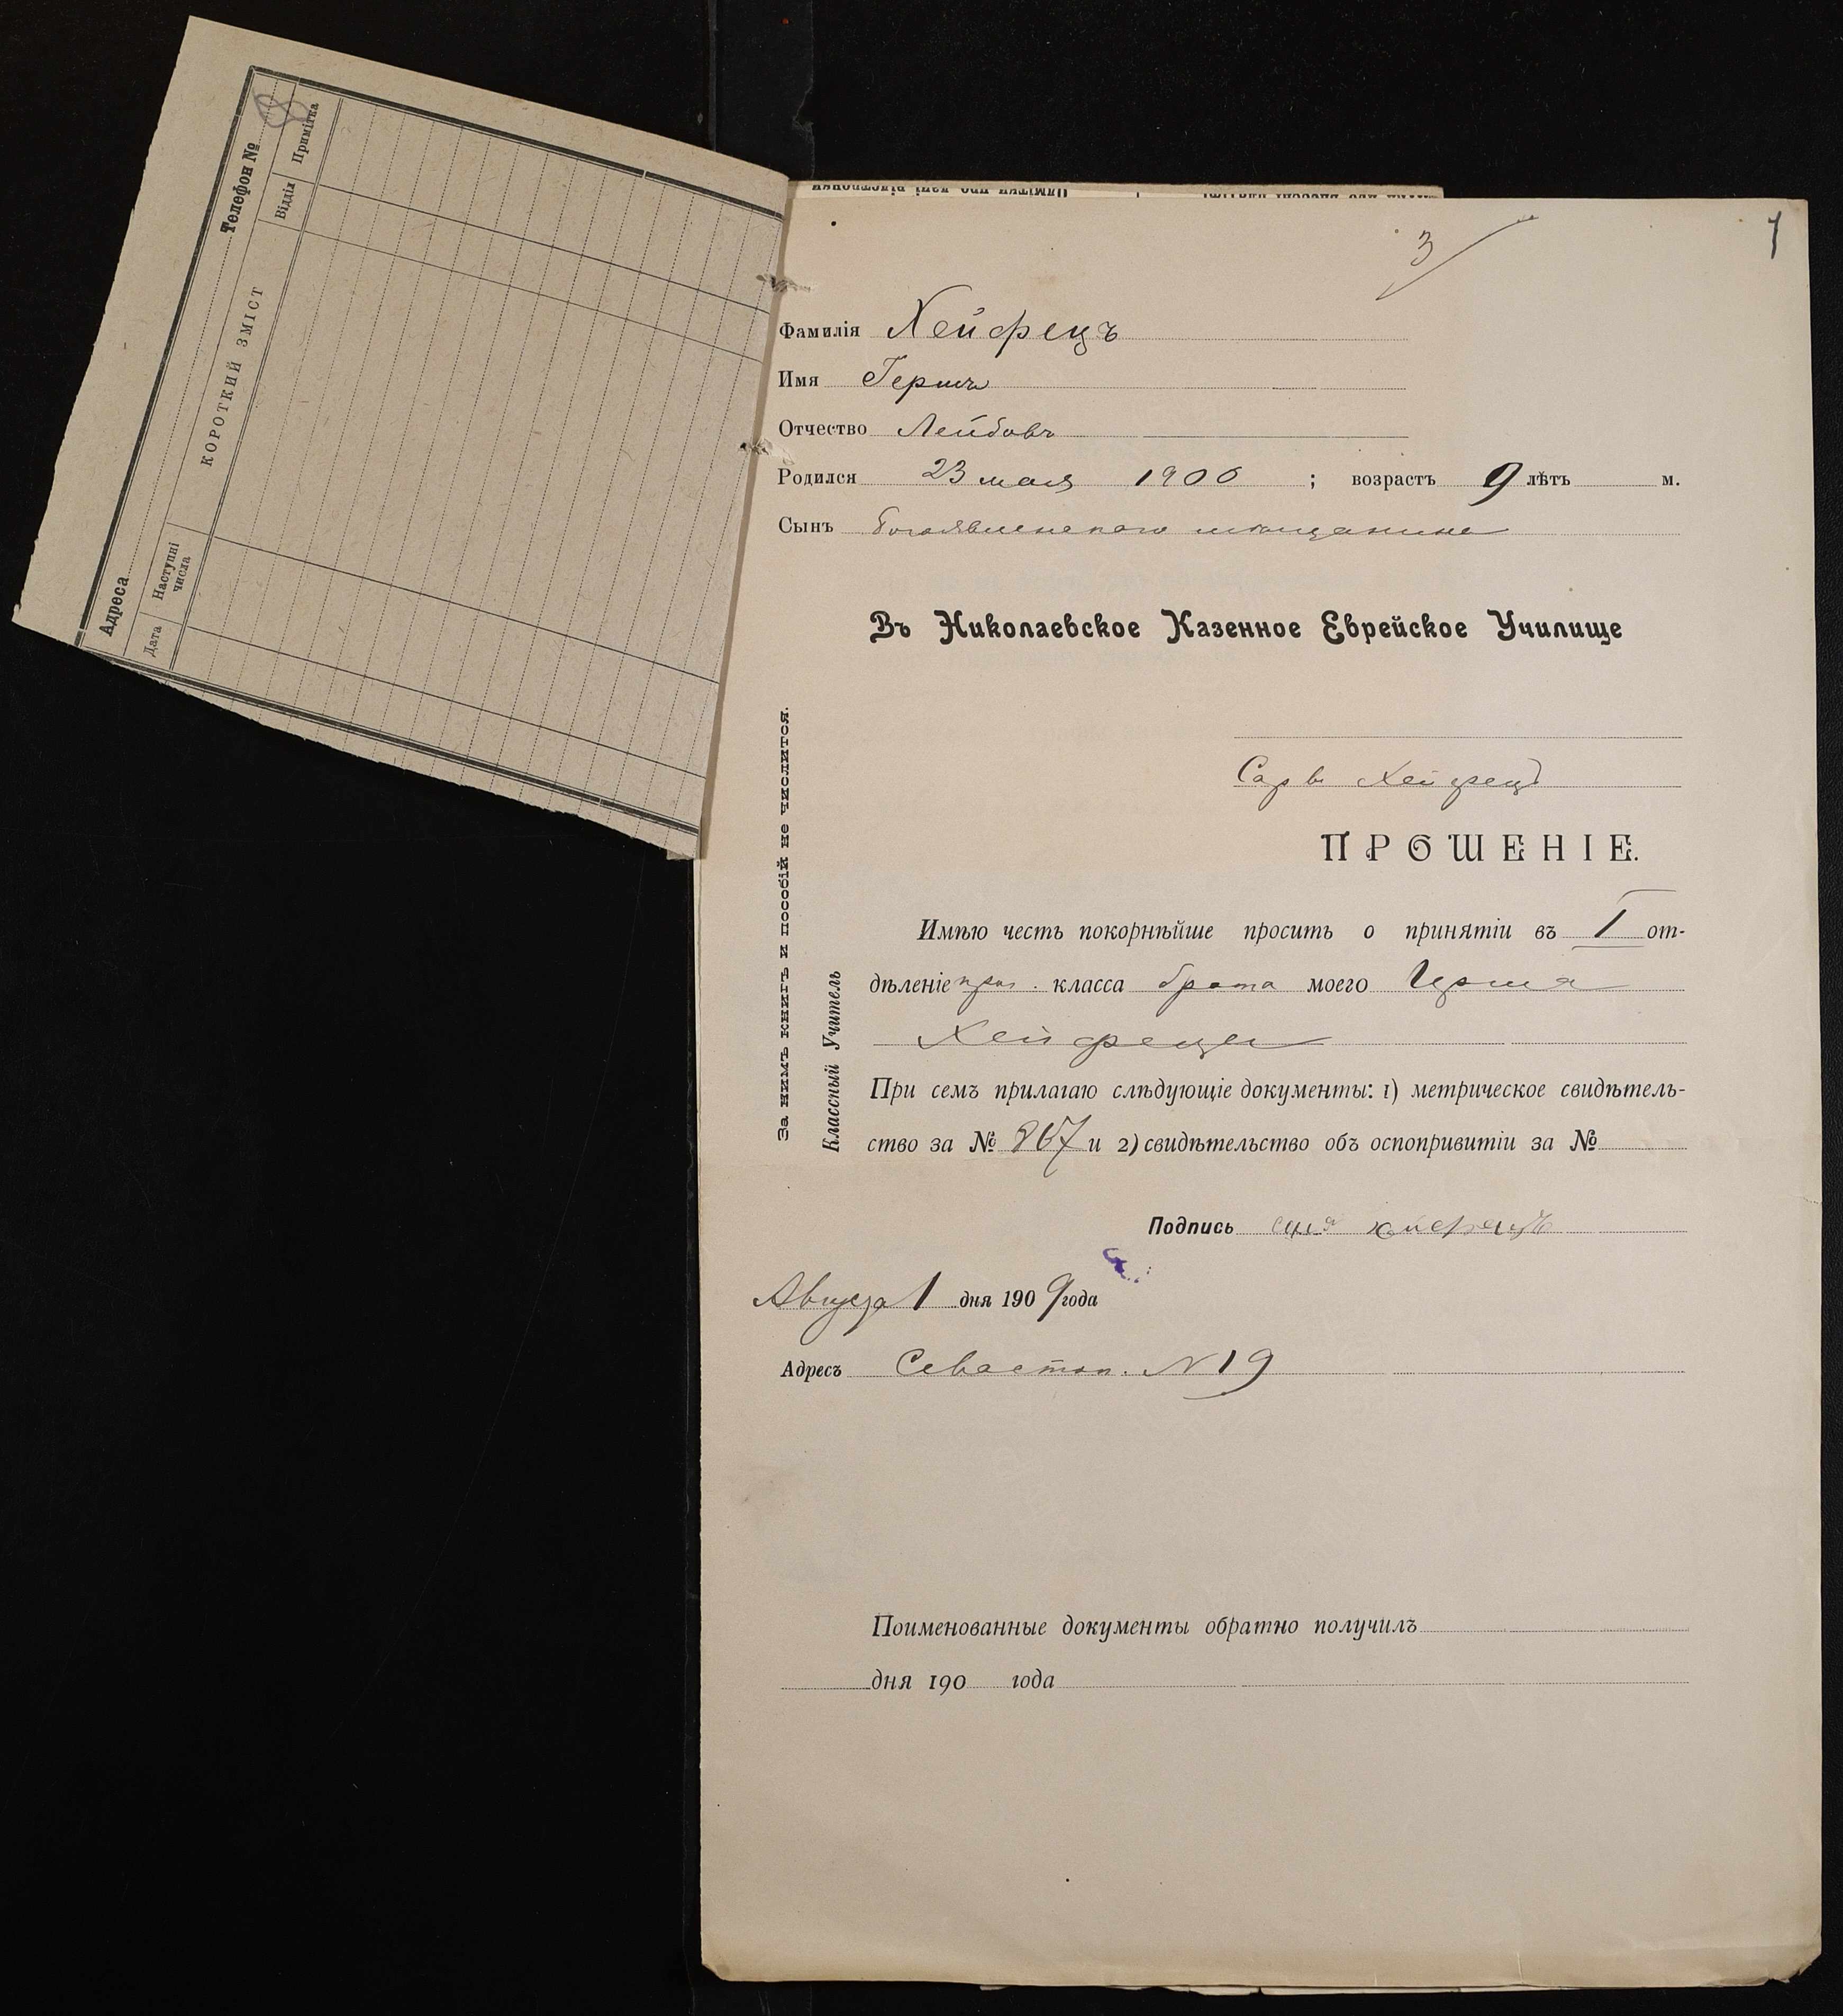 Адреса
Телефон №
8
Дата
Наступні числа
КОРОТКИЙ ЗМІСТ
Відділ
Примітка
3
1
Фамилія Хейфецъ
Имя Гершъ
Отчество Лейбовъ
Родился 23 мая 1900 ; возрастъ 9 лѣтъ м.
Сынъ Богоявленскаго мѣщанина
Въ Николаевское Казенное Еврейское Училище
Хейфецъ
ПРОШЕНІЕ.
Имѣю честь покорнѣйше просить о принятіи въ I от-
дѣленіе класса брата моего Герша
Хейфеца
При семъ прилагаю слѣдующіе документы: 1) метрическое свидѣтель-
ство за № 867 и 2) свидѣтельство объ оспопривитіи за №
Подпись хейфецъ
Августа 1 дня 1909 года
Адресъ Севастоп. N 19
Поименованные документы обратно получилъ
дня 190 года
За нимъ книгъ и пособій не числится.
Классный Учитель